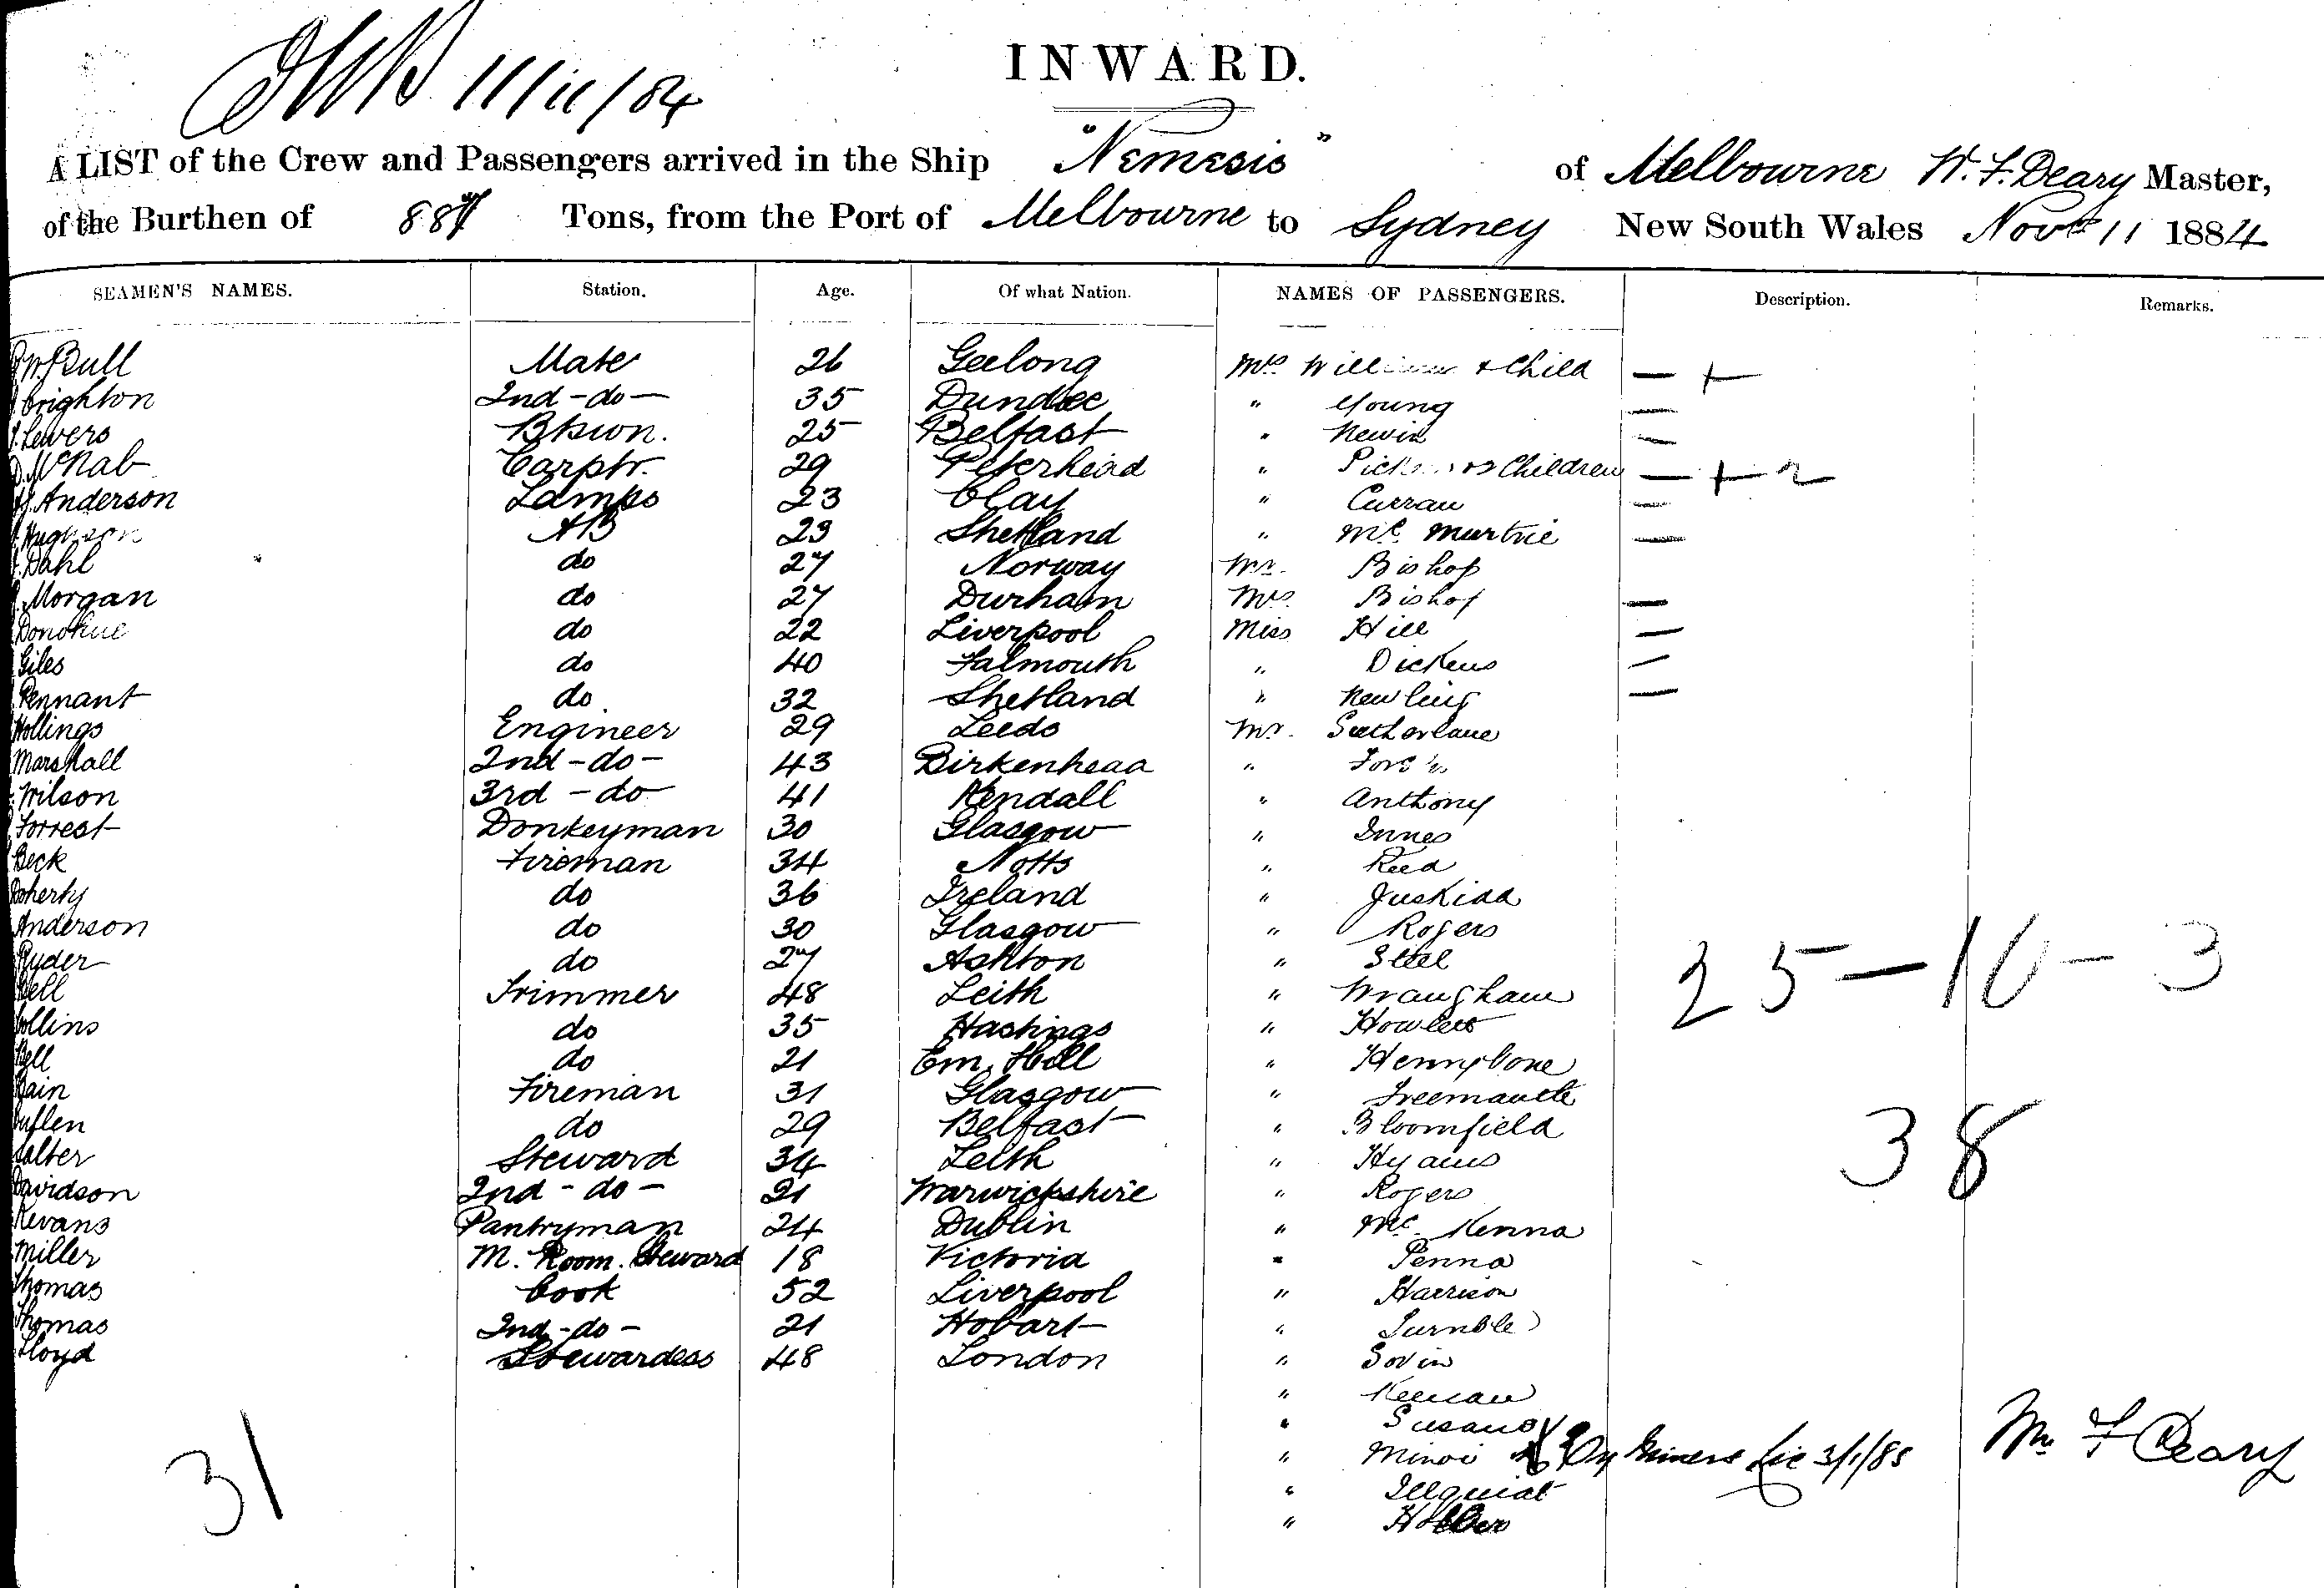 11/11/84
INWARD.
A LIST of the Crew and Passengers arrived in the Ship "Nemesis" of Melbourne W. F. Deary Master,
of the Burthen of Tons, from the Port of Melbourne to Sydney New South Wales Novr 11 1884
SEAMEN'S NAMES. Station. Age. Of what Nation. NAMES OF PASSENGERS. Description. Remarks.
Bull Mate 26 Geelong Mrs & Child — +
Crighton 2nd - do - 35 Dundee " Young —
Lewers Btswn. 25 Belfast " Newin —
D. McNab Carptr. 29 Peterhead " Children — + 2
Anderson Lamps 23 Clay " Curran —
AB 23 Shetland " Mc Murtrie —
Dahl do 27 Norway Mr. Bishop
Morgan do 27 Durham Mrs. Bishop —
Donohue do 22 Liverpool Miss Hill —
Giles do 40 Falmouth " Dickens —
Pennant do 32 Shetland " Newling —
Hollings Engineer 29 Leeds Mr. Sutherland
Marshall 2nd - do - 43 Birkenhead "
Wilson 3rd - do 41 Kendall " Anthony
Forrest Donkeyman 30 Glasgow " Innes
Beck Fireman 34 Notts " Reed
Doherty do 36 Ireland "
Anderson do 30 Glasgow " Rogers
Ryder do 27 Ashton " Steel
Bell Trimmer 48 Leith " Wraugham
Collins do 35 Hastings " Howlett
Bell do 21 Em. Hill "
Bain Fireman 31 Glasgow "
do 29 Belfast " Bloomfield
Salter Steward 34 Leith " Hyams
Davidson 2nd - do - 21 Warwickshire " Rogers
Kevans Pantryman 24 Dublin " Mc Kenna
Miller M. Room. Steward 18 Victoria " Penna
Thomas Cook 52 Liverpool " Harrison
Thomas 2nd - do - 21 Hobart " Turnble
Lloyd Stewardess 48 London "
" Keenan
"
"
"
"
25 — 10 - 3
38
31
3/1/85
Wm F Deary